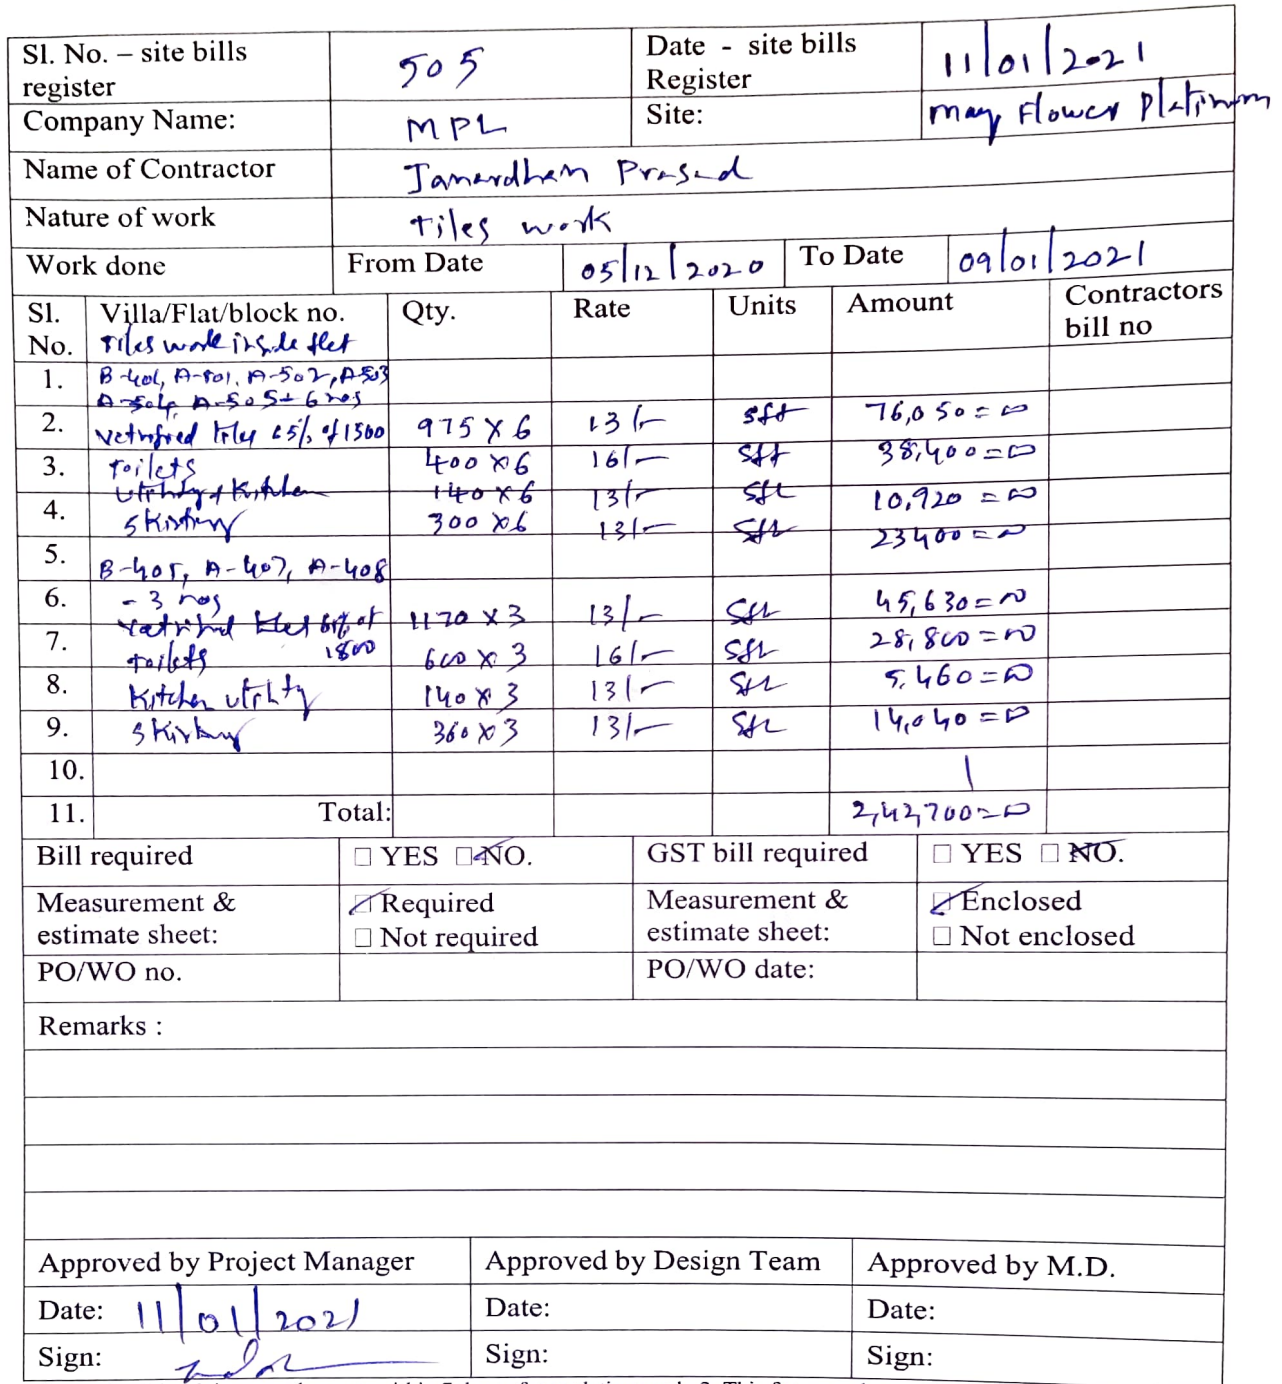 Sl. No. – site bills register 505 Date - site bills Register 11/01/2021
Company Name: MPL Site: May Flower Platinum
Name of Contractor Janardhan Prasad
Nature of work tiles work
Work done From Date 05/12/2020 To Date 09/01/2021
Sl. No. Villa/Flat/block no. Qty. Rate Units Amount Contractors bill no
Tiles work inside flat
1. B-406, A-501, A-502, A-503
A-504, A-505 6 nos
2. Vetrified tiles 65% of 1500 975 X 6 13/- sft 76,050=00
3. toilets 400 X 6 16/- sft 38,400=00
Utility & Kitchen 140 X 6 13/- sft 10,920=00
4. Skirting 300 X 6 13/- sft 23400=00
5. B-405, A-407, A-408
6. - 3 nos
Vetrified tiles 65% of 1800 1170 X 3 13/- sft 45,630=00
7. toilets 600 X 3 16/- sft 28,800=00
8. Kitchen utility 140 X 3 13/- sft 5,460=00
9. Skirting 360 X 3 13/- sft 14,040=00
10.
11. Total: 2,42,700=00
Bill required □ YES □ NO. GST bill required □ YES □ NO.
Measurement & estimate sheet: □ Required Measurement & estimate sheet: □ Enclosed
□ Not required □ Not enclosed
PO/WO no. PO/WO date:
Remarks :
Approved by Project Manager Approved by Design Team Approved by M.D.
Date: 11/01/2021 Date: Date:
Sign: Sign: Sign: